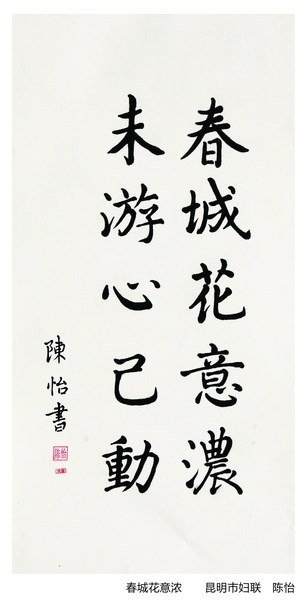 春城花意濃
未游心已動
陳怡書
陳怡
春城花意浓 昆明市妇联 陈怡